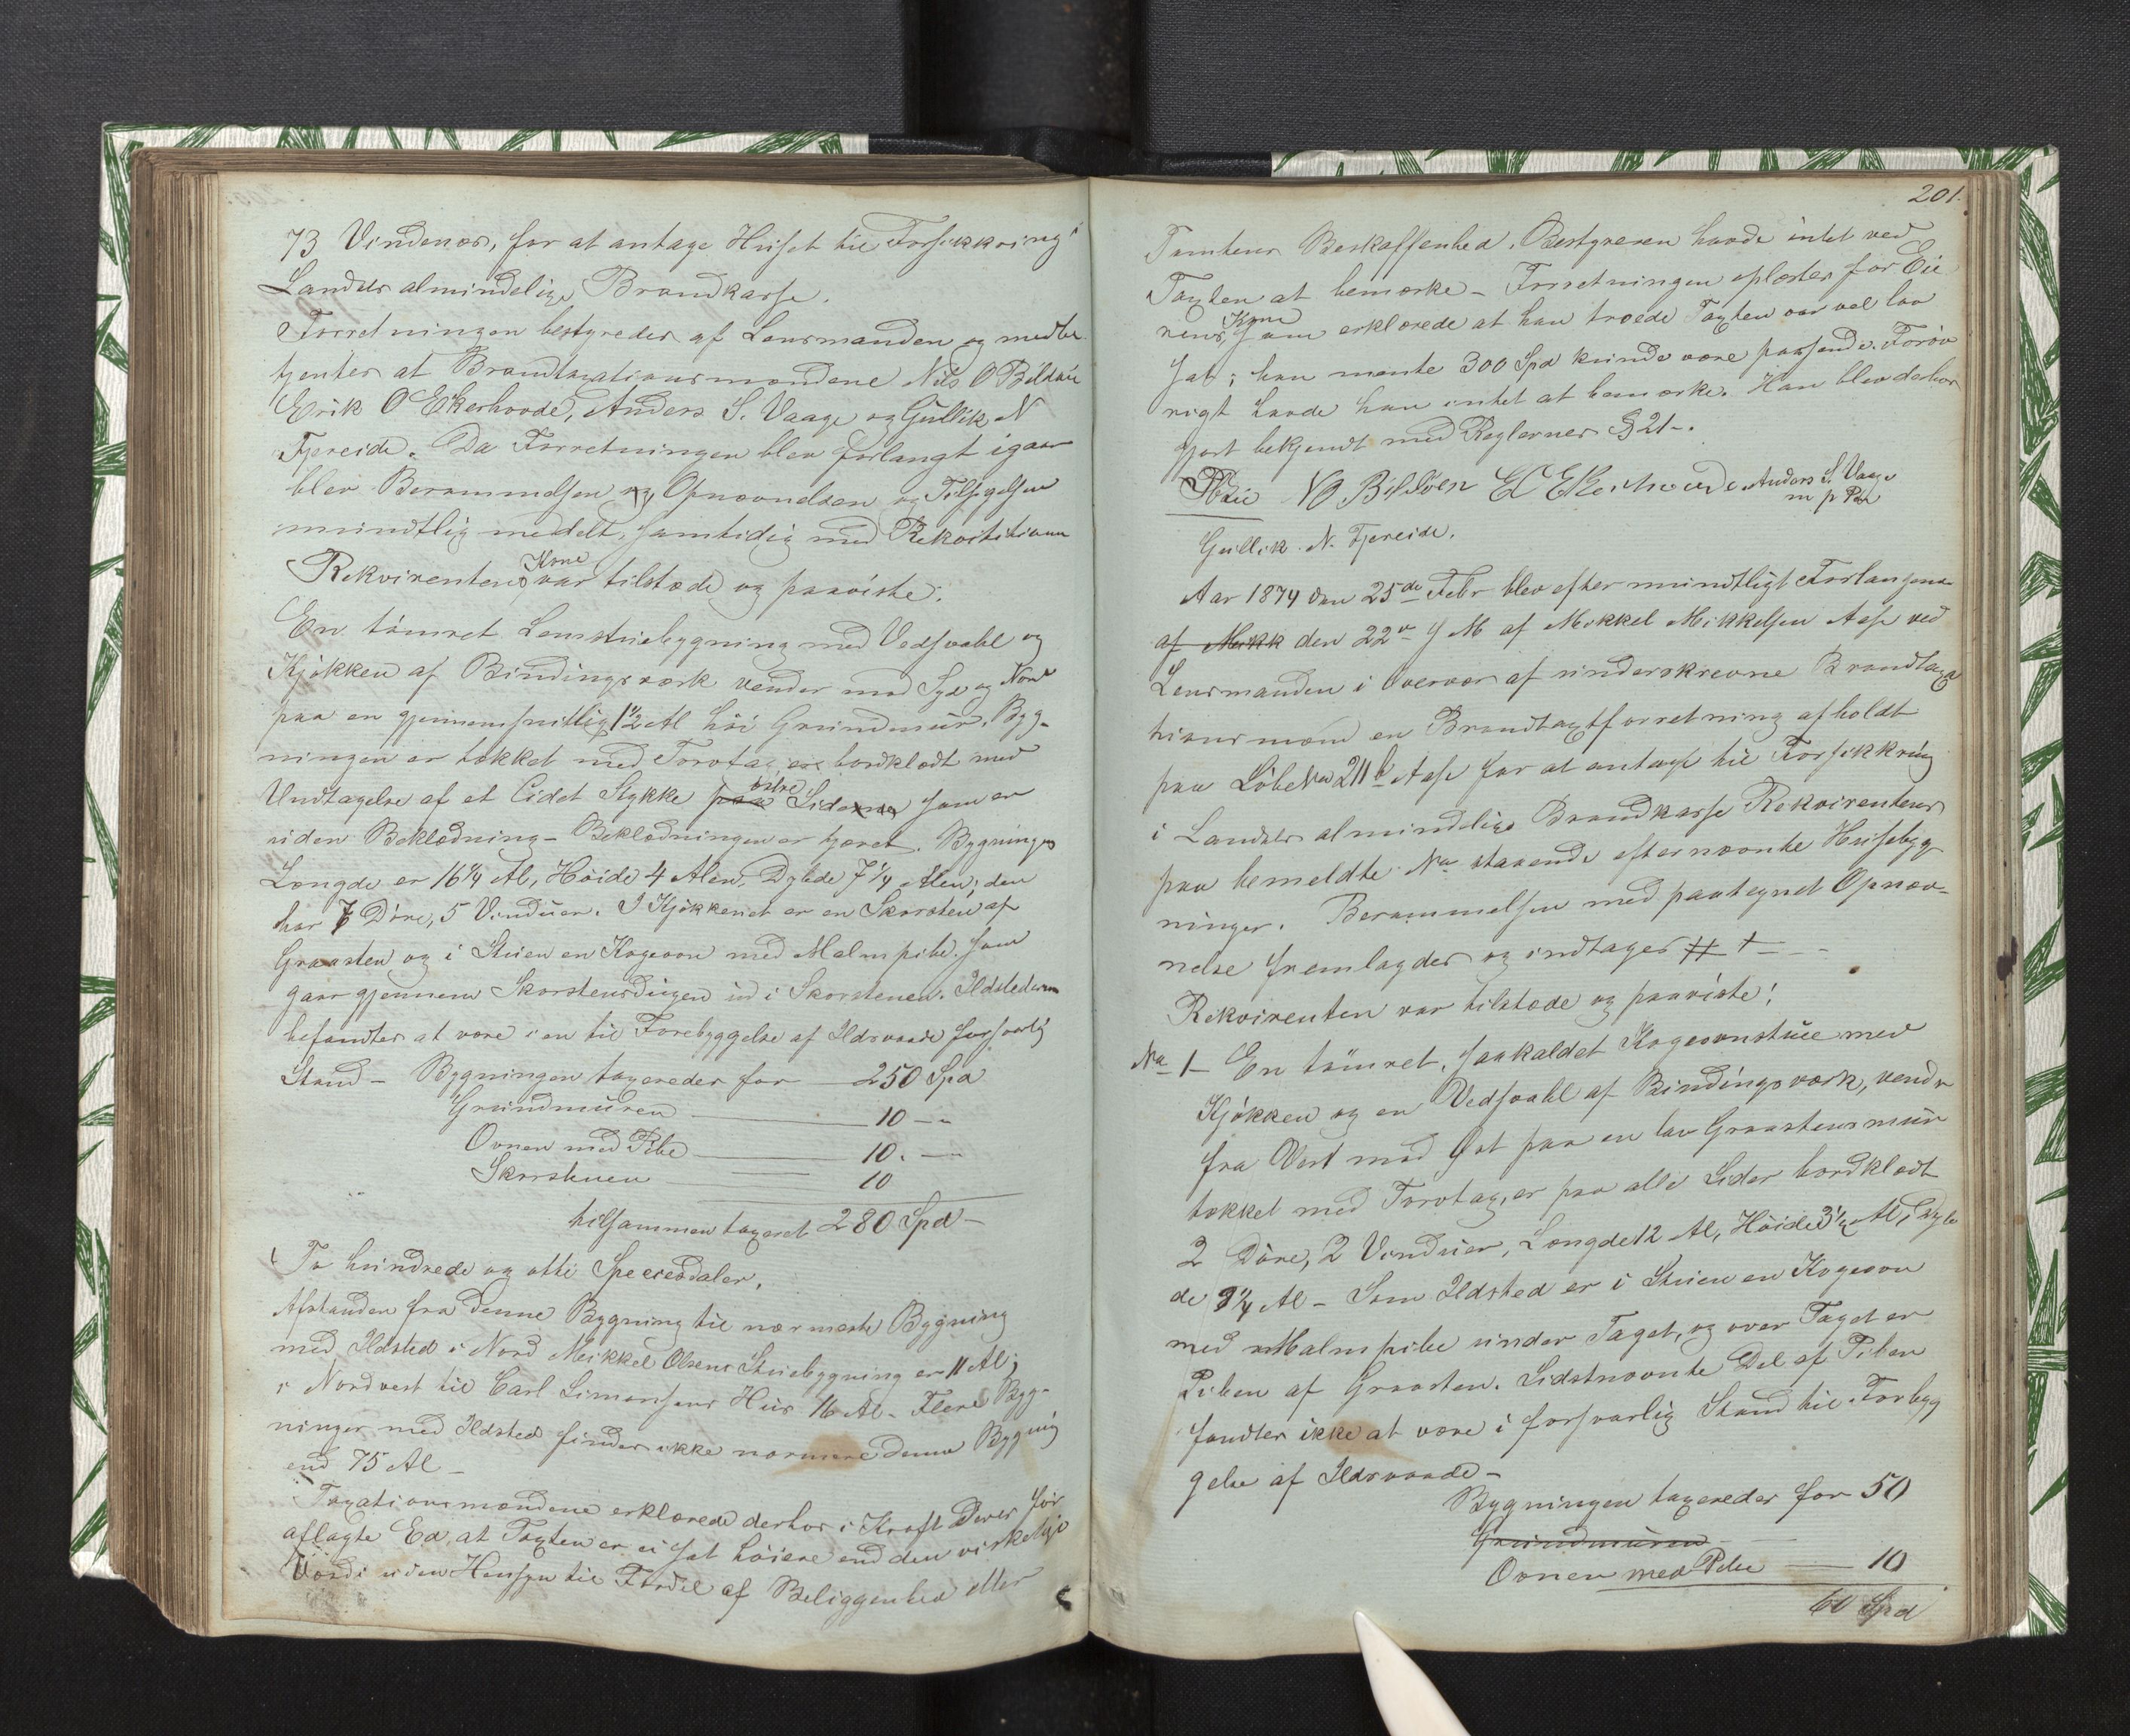 73 Vindenæs, for at antage Huset til Forsikkring i
Landets almindelige Brandkasse.
Forretningen bestyredes af Lensmanden og medbe-
tjentes af Brandtaxationsmændene Nils O Bildøen
Erik O Ekerhovde, Anders S. Vaage og Gullik N
Fjereide. Da Forretningen blev forlangt igaar
blev Berammelsen og Opnævnelsen og Tilsigelsen
mundtlig meddelt, samtidig med Rekvisitionen
Rekvirentens Kone var tilstæde og paaviste:
En tømret Lemstuebygning med Vedsvahl og
Kjøkken af Bindingsværk vender mod Syd og Nord
paa en gjennemsnitlig 1 1/2 Al høi Grundmur. Byg-
ningen er tækket med Torvtag er bordklædt med
Undtagelse af et lidet Stykke paa østre Siderne som er
uden Beklædning - Beklædningen er tjæret. Bygningens
Længde er 16 1/4 Al, Høide 4 Alen, Dybde 7 1/4 Alen; den
har 7 Døre, 5 Vinduer. I Kjøkkenet er en Skorsten af
Graasten og i Stuen en Kogeovn med Malmpibe som
gaar gjennem Skorstensdingen ud i Skorstenen. Ildstederne
befandtes at være i en til Forebyggelse af Ildsvaade forsvarlig
Stand - Bygningen taxeredes for — 250 Spd
Grundmuren — 10 — "
Ovnen med Pibe — 10. — "
Skorstenen — 10
tilsammen taxeret 280 Spd -
To hundrede og otti Speciedaler.
Afstanden fra denne Bygning til nærmeste Bygning
med Ildsted i Nord Mikkel Olsens Stuebygning er 11 Al;
i Nordvest til Carl Simonsens Hus 16 Al. Flere Byg-
ninger med Ildsted findes ikke nærmere denne Bygning
end 75 Al -
Taxationsmændene erklærede derhos i Kraft deres før
aflagte Ed, at Taxten er ei sat høiere end den virkelige
Værdi uden Hensyn til Fordel af Beliggenhed eller
201.
Tomtens Beskaffenhed. Bestyreren havde intet ved
Taxten at bemærke - Forretningen oplæstes for Eie-
rens Kone som erklærede at hun troede Taxten var vel lav
sat; hun mente 300 Spd kunde være passende. Forøv-
rigt havde hun intet at bemærke. Han blev derhos
gjort bekjendt med Reglernes § 21 -.
NO Bildöen EO Ekerhovde Anders S. Vaage
m p Pen
Gullik N. Fjereide.
Aar 1874 den 25de Febr blev efter mundtligt Forlangende
af Mikk den 22de s M af Mikkel Mikkelsen Aase ved
Lensmanden i Overvær af underskrevne Brandtaxa-
tionsmænd en Brandtaxtforretning afholdt
paa Løbe No 211 b Aase for at antage til Forsikkring
i Landets almindelige Brandkasse Rekvirentens
paa bemeldte No staaende efternævnte Husebyg-
ninger. Berammelsen med paategnet Opnæv-
nelse fremlagdes og indtages # † - -
Rekvirenten var tilstæde og paaviste:
No 1 - En tømret, saakaldet Kogeovnstue med
Kjøkken og en Vedsvahl af Bindingsværk, vender
fra Vest mod Øst paa en lav Graastensmur
tækket med Torvtag, er paa alle Sider bordklædt
2 Døre, 2 Vinduer, Længde 12 Al, Høide 3 1/2 Al, Dyb-
de 9 1/4 Al - Som Ildsted er i Stuen en Kogeovn
med Malmpibe under Taget, og over Taget er
Piben af Graasten. Sidstnævnte Del af Piben
fandtes ikke at være i forsvarlig Stand til Forbyg-
gelse af Ildsvaade -
Bygningen taxeredes for 50
Grundmuren -
Ovnen med Pibe — 10
60 Spd